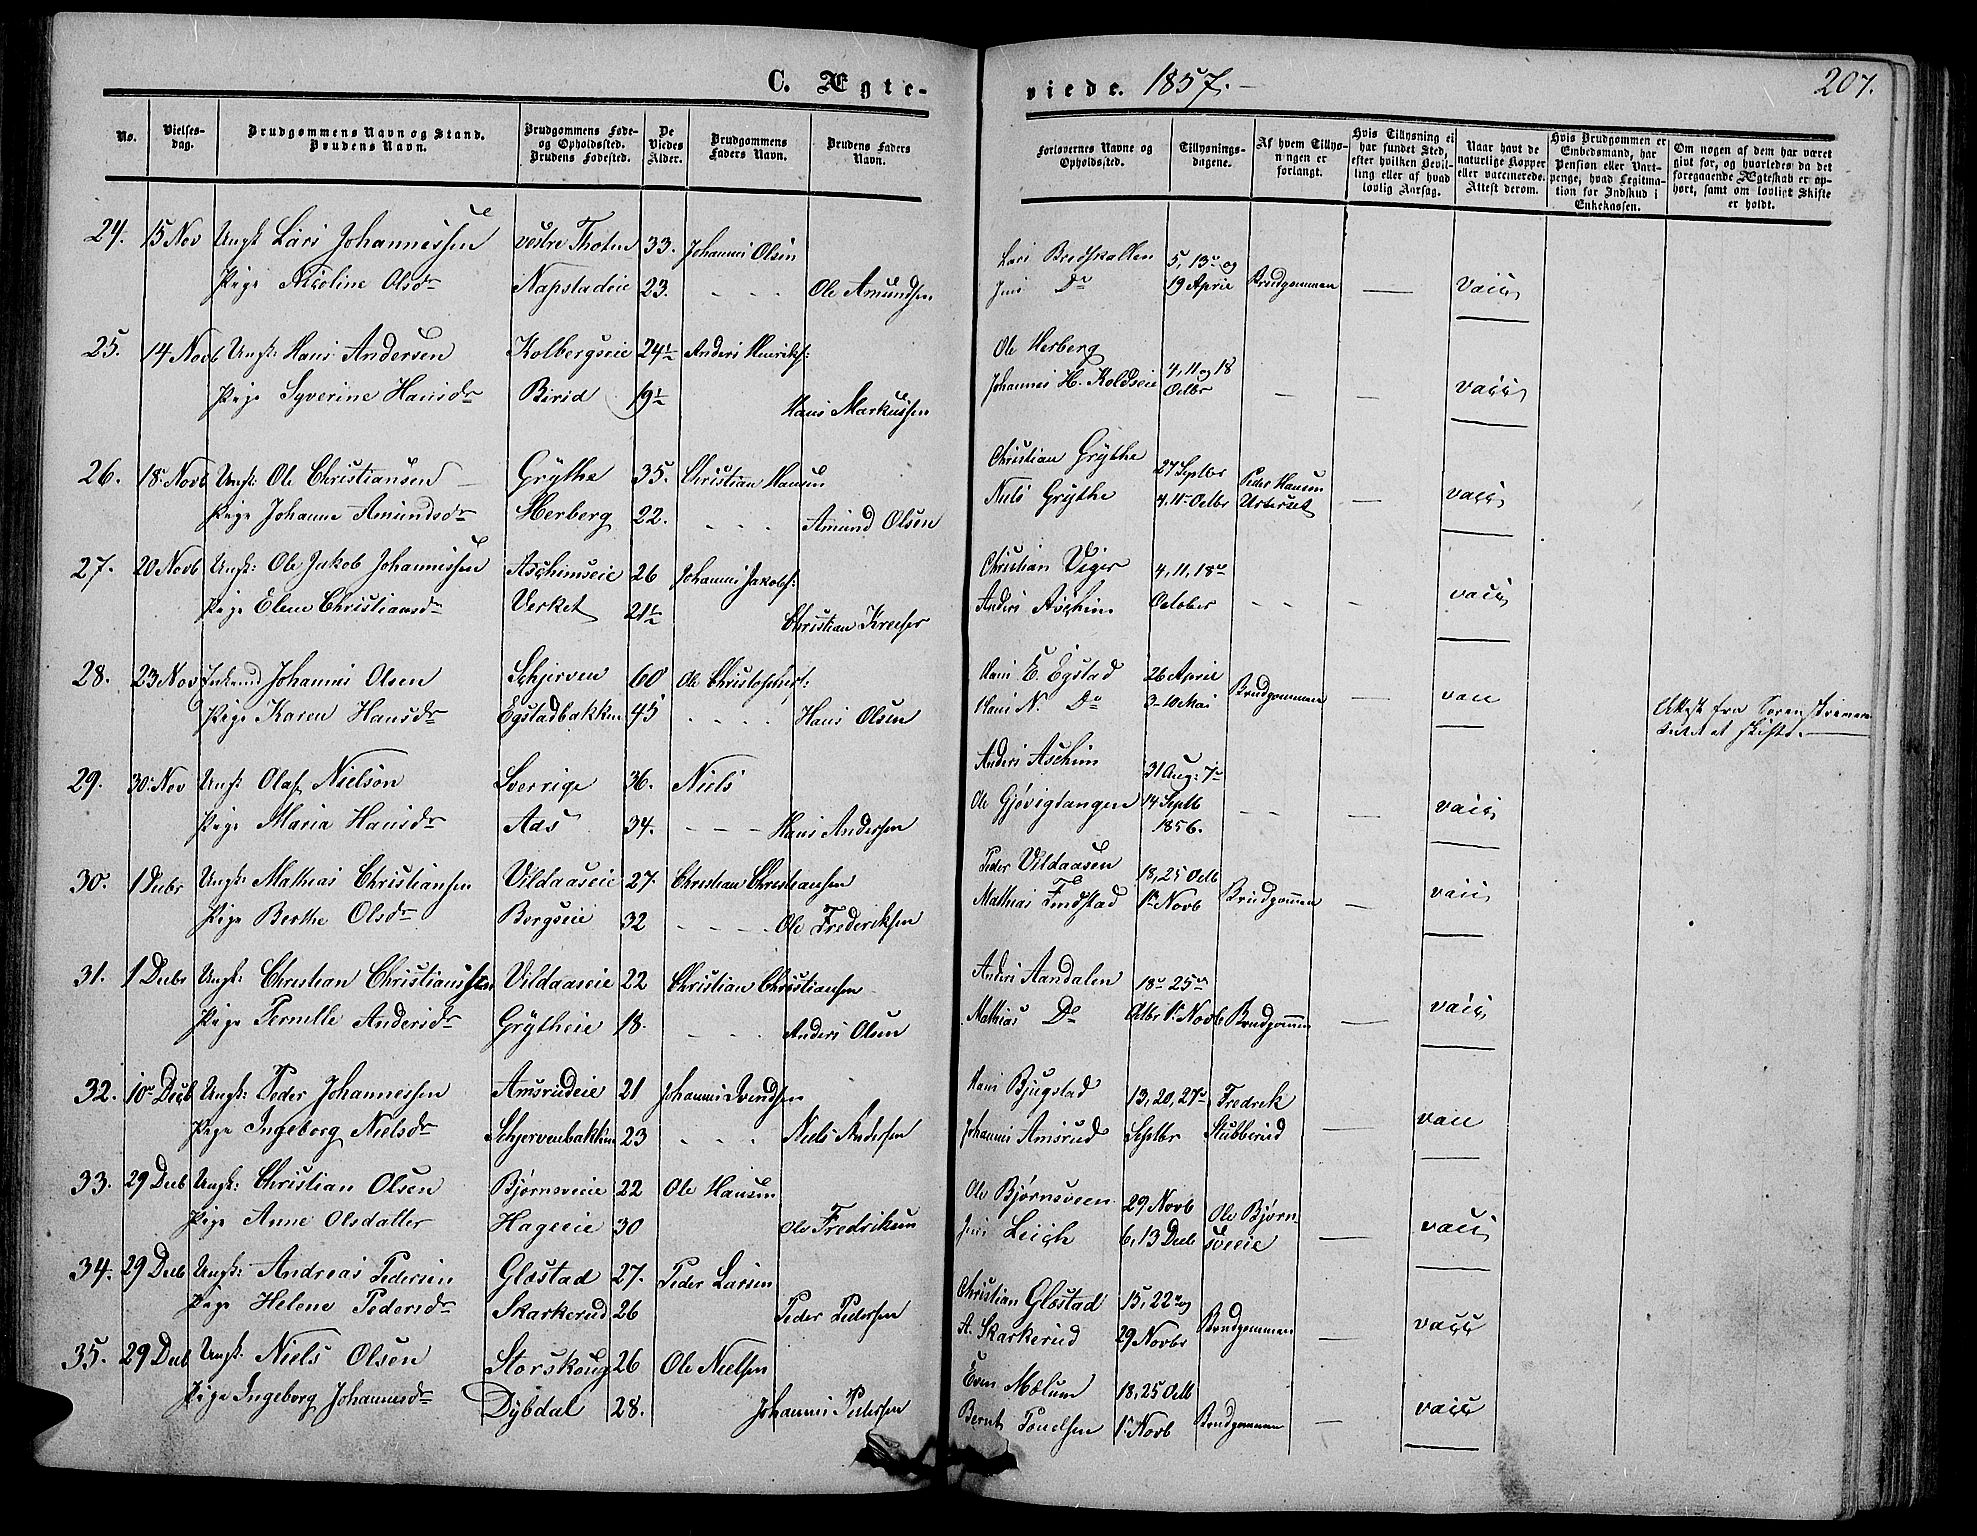 C. Ægte-
viede. 1857.
207.
No.
Vielses-
dag.
Brudgommens Navn og Stand.
Brudens Navn.
Brudgommens Føde-
og Opholdssted.
Brudens Fødested.
De
Viedes
Alder.
Brudgommens
Faders Navn.
Brudens Faders
Navn.
Forlovernes Navne og
Opholdssted.
Tillysnings-
dagene.
Af hvem Tillys-
ningen er
forlangt.
Hvis Tillysning ei
har fundet Sted,
efter hvilken Bevil-
ling eller af hvad
lovlig Aarsag.
Naar havt de
naturlige Kopper
eller vaccinerede.
Attest derom.
Hvis Brudgommen er
Embedsmand, har
Pension eller Vart-
penge, hvad Legitima-
tion for Indskud i
Enkekassen.
Om nogen af dem har været
gift før, og hvorledes da det
foregaaende Ægteskab er op-
hørt, samt om lovligt Skifte
er holdt.
24. 15 Nov Ungk Lars Johannessen vestre Thoten 33. Johannes Olsen Lars Bredskallen 5, 13de og
Pige Nicoline Olsdr Napstadeie 23. - - - Ole Amundsen Jens Do 19 April Brudgommen — vacc.
25. 14 Novb Ungk: Hans Andersen Kolbergseie 24½ Anders Henriks: Ole Herberg 4, 11 og 18
Pige Syverine Hansdr Birid 19½ Hans Markussen Johannes H. Koldseie Octbr — — vacc.
26. 18. Novb Ungk: Ole Christiansen Grythe 35. Christian Hansen Christian Grythe 27 Septbr Peder Hansen
Pige Johanne Amundsdr Herberg 22. - - - Amund Olsen Niels Grythe 4, 11 Octbr — vacc.
27. 20 Novb Ungk: Ole Jakob Johannessen Aschimseie 26 Johannes Jakobs: Christian Veger 4, 11, 18de
Pige Elene Christiansdr Verket 21½ Christian Anders Aschim October - - - vacc.
28. 23 Nov Johannes Olsen Schjerven 60 Ole Christophers: Hans E. Egstad 26 April
Pige Karen Hansdr Egstadbakken 45 - - - - Hans Olsen Hans N. Do 3-10 Mai Brudgommen — vacc Attest fra Sorenskriveren
29. 30. Nov Ungk Olaf Nielson Sverrige 36. Niels Anders Aschim 31 Aug: 7de
Pige Maria Hansdr Aas 34. - - - Hans Andersen Ole Gjøvigtangen 14 Septb — — vacc.
1856.
30. 1 Decbr Ungk: Mathias Christiansen Vildaaseie 27. Christian Christiansen Peder Vildaasen 18, 25 Octb
Pige Berthe Olsdr Borgseie 32 - - - - Ole Frederiksen Mathias Findstad 1ste Novb Brudgommen — vacc
31. 1 Decbr Ungk: Christian Christiansen Vildaaseie 22 Christian Christiansen Anders Aandalen 18de 25de
Pige Pernille Andersdr Grytheie 18. - - - Anders Olsen Mathias Do Octbr 1. Novb Brudgommen — vacc
32. 10de Decb Ungk: Peder Johannessen Amsrudeie 21 Johannes Svendsen Hans Bjugstad 13, 20, 27de Fredrik
Pige Ingeborg Nielsdr Schjervenbakken 23 - - - Niels Andersen Johannes Amsrud Septbr Stubberud — vacc
33. 29 Decb Ungk: Christian Olsen Bjørnsveeie 22 Ole Hansen Ole Bjørnsveen 29 Novb Ole Bjørn-
Pige Anne Olsdatter Hageeie 30 Ole Fredriksen Jens 6, 13 Decb sveeie — vacc
34. 29 Decb Ungk: Andreas Pedersen Glæstad 27. Peder Larsen Christian Glæstad 15, 22 og
Pige Helene Pedersdr Skarkerud 26 Peder Pedersen A. Skarkerud 29 Novbr Brudgommen — vacc
35. 29 Decb Ungk. Niels Olsen Storskoug 26 Ole Nielsen Even Mælum 18, 25 Octb
Pige Ingeborg Johannesdr Dybdal 28. Johannes Pedersen Bernt 1. Novb Brudgommen — vacc